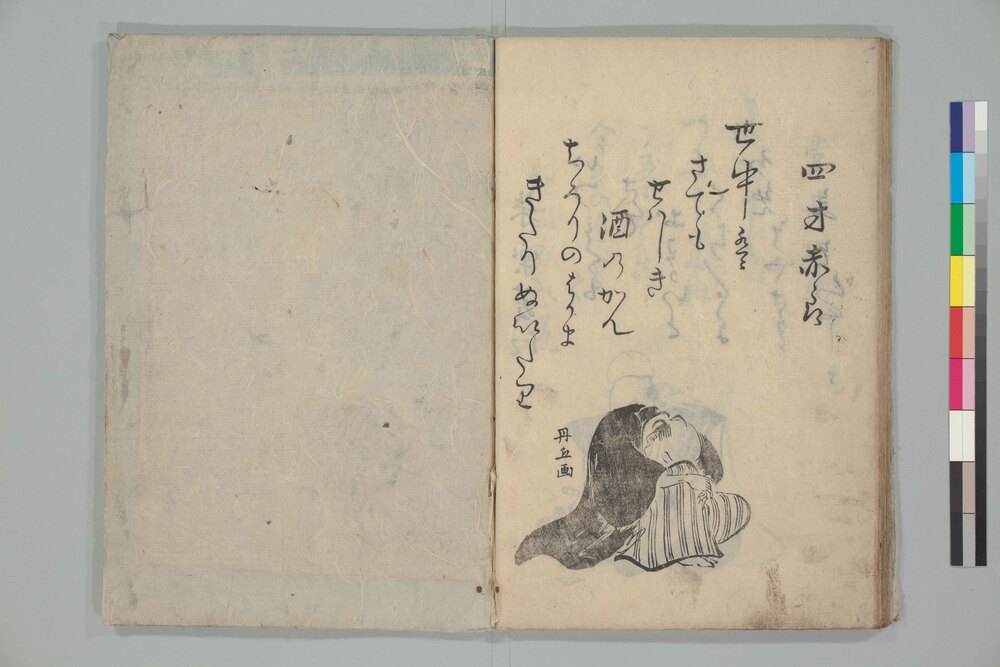 四方赤良
世中は
さても
せはしき
酒のかん
ちろりのはかま
きたりぬいたり
丹丘画